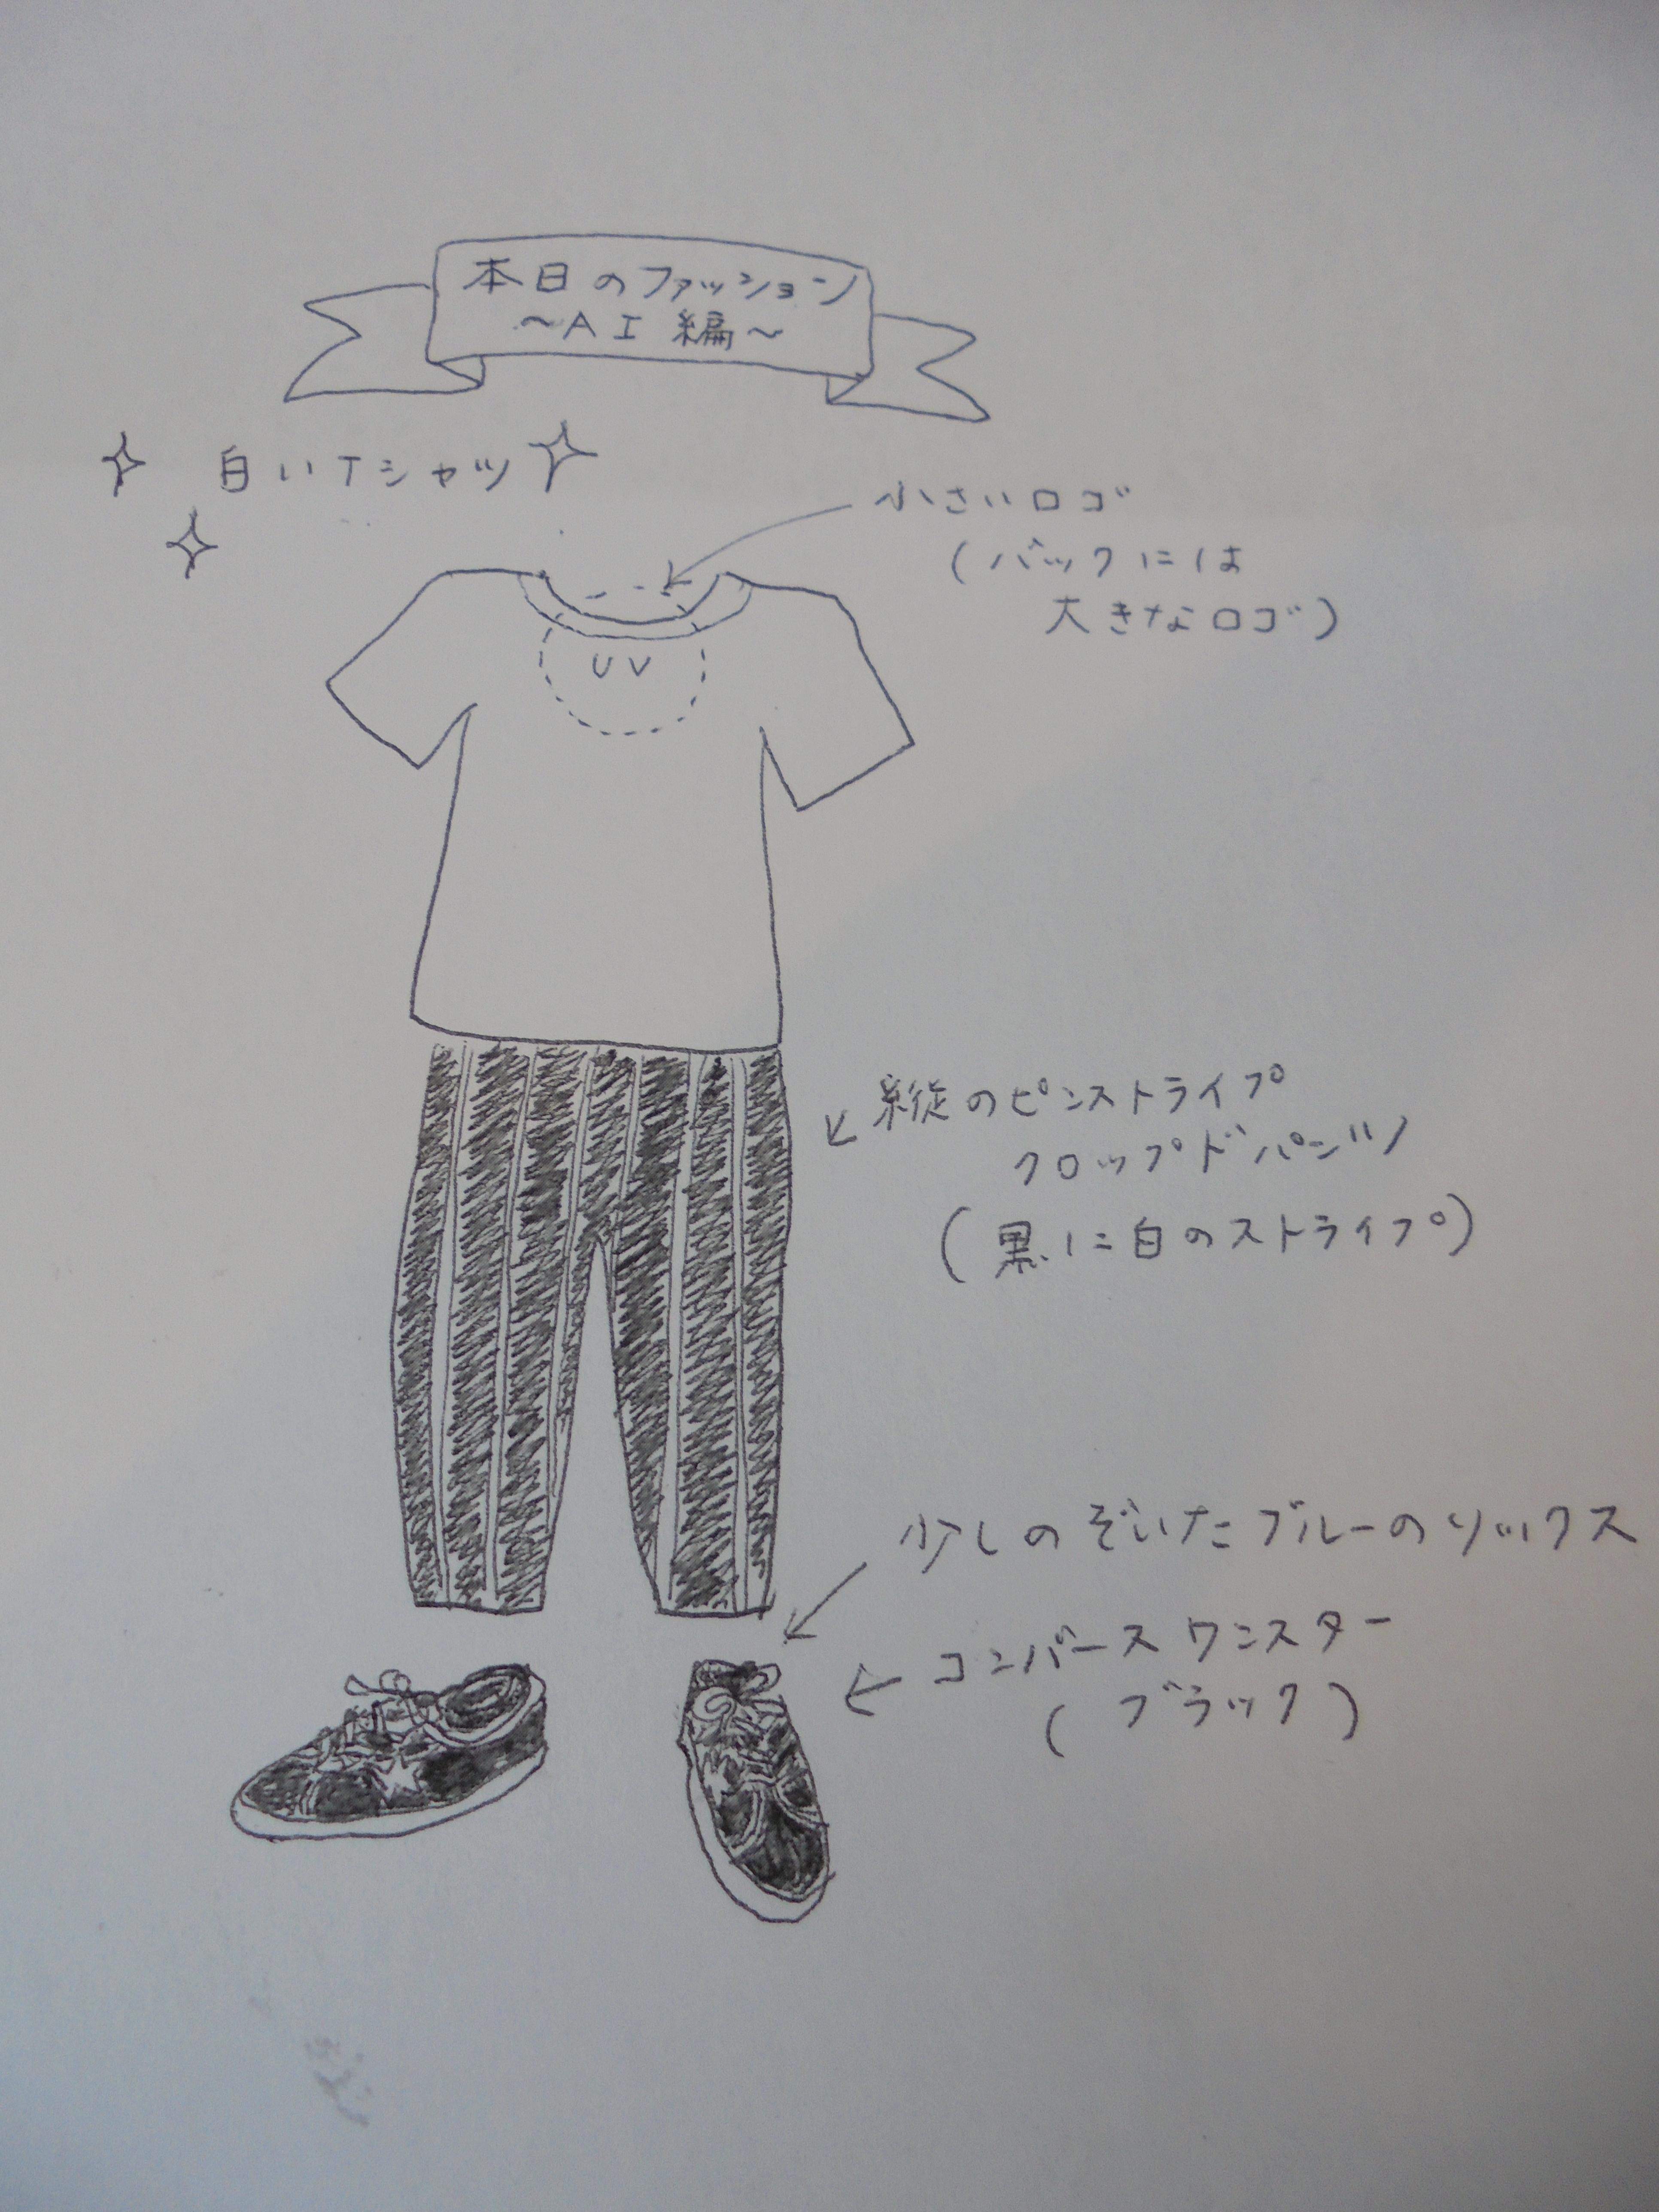 本日のファッション
～AI編～
白いTシャツ
小さいロゴ
(バックには
大きなロゴ)
UV
縦のピンストライプ
クロップドパンツ
(黒に白のストライプ)
少しのぞいたブルーのソックス
コンバースワンスター
(ブラック)